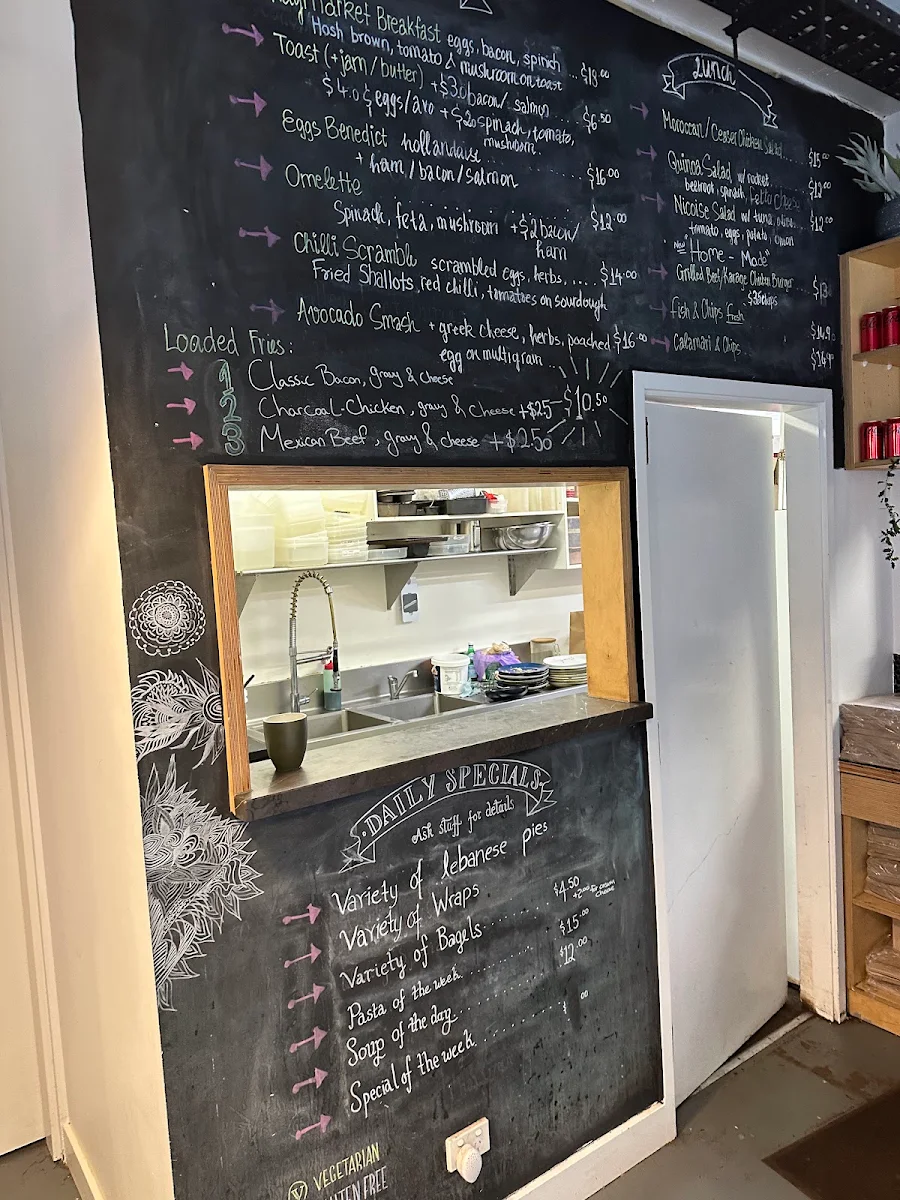 Market Breakfast eggs, bacon, spinich
Hash brown, tomato & mushroom on toast ... $18.00
Toast (+jam/butter) +$3.0 bacon/salmon
$4.0 eggs/avo +$2.0 spinach, tomato, mushroom. $6.50
Eggs Benedict hollandaise ...
+ ham/bacon/salmon $16.00
Omelette ..........
Spinach, feta, mushroom +$2 bacon/ham $12.00
Chilli Scramble scrambled eggs, herbs, .... $14.00
Fried Shallots, red chilli, tomatoes on sourdough
Avocado Smash + greek cheese, herbs, poached $16.00
egg on multigrain ...
Loaded Fries:
1 Classic Bacon, gravy & cheese
2 Charcoal Chicken, gravy & cheese +$2.5 $10.50
3 Mexican Beef, gravy & cheese +$2.50
Lunch
Moroccan/Ceaser Chicken Salad ... $15
Quinoa Salad w/ rocket
beetroot, spinach, Fetta cheese $12.00
Nicoise Salad w/ tuna, olives $12.00
tomato, eggs, potato, onion
New "Home-Made"
Grilled Beef/Karage Chicken Burger $13
Fish & Chips Fresh $14.9
Calamari & Chips $14.9
DAILY SPECIALS
Ask stuff for details
Variety of lebanese pies
Variety of Wraps
Variety of Bagels $4.50
Pasta of the week $15.00
Soup of the day $12.00
Special of the week $ .00
V VEGETARIAN
GLUTEN FREE